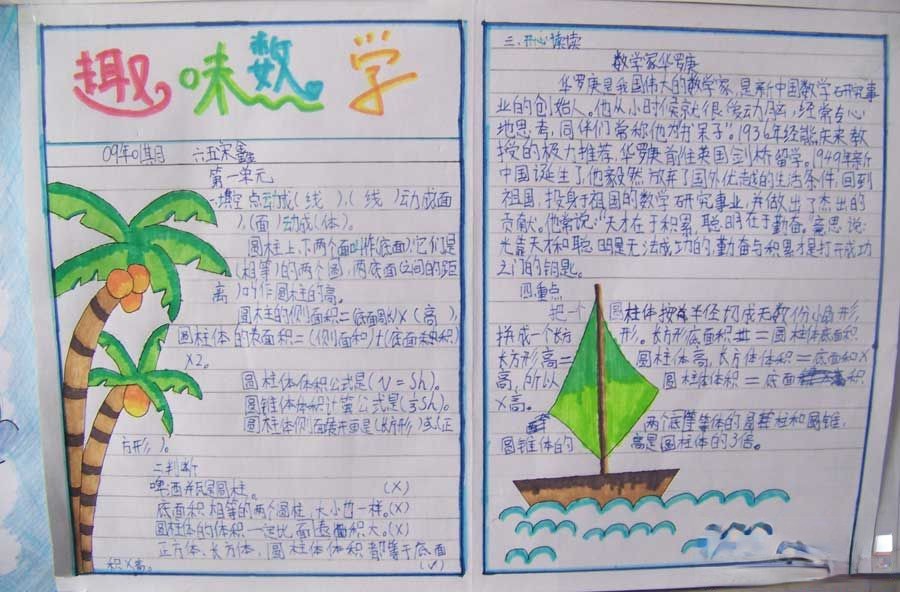 趣味数学
09年01期 六五宋鑫
第一单元
一.填空 点动成(线),(线)动成面
),(面)动成(体)。
圆柱上、下两个面叫作(底面),它们是
(相等)的两个圆,两底面之间的距
离)叫作圆柱的高。
圆柱的侧面积=(底面周长)X(高),
圆柱体的表面积=(侧面积)+(底面积)
X2。
圆柱体体积公式是(V=Sh)。
圆锥体体积计算公式是(1/3Sh)。
圆柱体侧面展开面是(长方形)或(正
方形)。
二.判断
啤酒瓶是圆柱。 (X)
底面积相等的两个圆柱,大小也一样。(X)
圆柱体的体积一定比面积大。(X)
正方体、长方体,圆柱体体积都等于底面
积X高。 (√)
三.开心读读
数学家华罗庚
华罗庚是我国伟大的数学家,是新中国数学研究事
业的创始人。他从小时侯就很爱动脑,经常专心
地思考,同伴们常称他为“呆子”。1936年经熊庆来教
授的极力推荐,华罗庚前往英国剑桥留学。1949年新
中国诞生了,他毅然放弃了国外优越的生活条件,回到
祖国,投身于祖国的数学研究事业,并做出了杰出的
贡献。他常说:“天才在于积累,聪明在于勤奋。”意思说:
光靠天才和聪明是无法成功的,勤奋与积累才是打开成功
之门的钥匙。
四.重点
把一个圆柱体按半径切成无数份小扇形,
拼成一个长方形。长方形底面积=圆柱体底面积
长方形高=圆柱体高,长方体体积=底面积X
高,所以圆柱体积=底面积
X高。
两个底等体的圆柱和圆锥,
圆锥体的高是圆柱体的3倍。